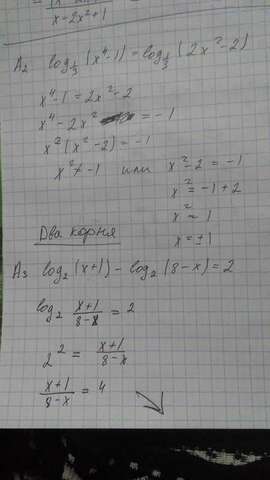 x=2x²+1
A₂ log_{1/3}(x⁴-1)=log_{1/3}(2x²-2)
x⁴-1=2x²-2
x⁴-2x² =-1
x²(x²-2)=-1
x²≠-1 или x²-2=-1
x²=-1+2
x²=1
x=±1
Два корня
A₃ log₂(x+1)-log₂(8-x)=2
log₂ (x+1)/(8-x) = 2
2² = (x+1)/(8-x)
(x+1)/(8-x) = 4